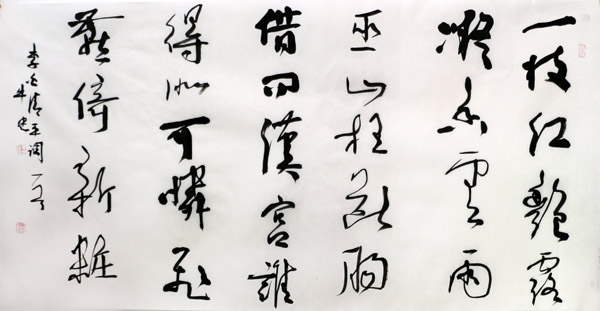 一枝红艷露
凝香雲雨
巫山枉断肠
借问漢宫誰
得似可憐飛
燕倚新粧
李白清平调一首